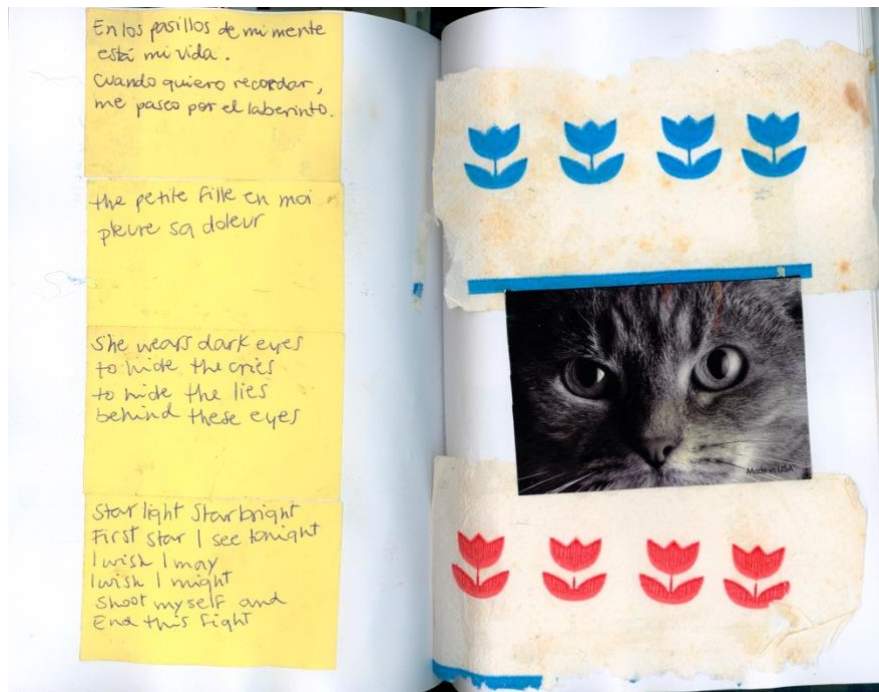 En los pasillos de mi mente
está mi vida.
Cuando quiero recordar,
me paseo por el laberinto.
the petite fille en moi
pleure sa doleur
She wears dark eyes
to hide the cries
to hide the lies
behind these eyes
Star light Star bright
First star I see tonight
I wish I may
I wish I might
Shoot myself and
End this fight
Made in USA